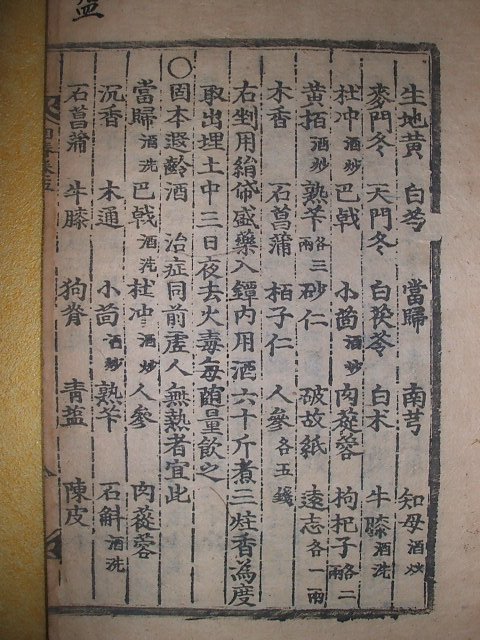 生地黃 白芍 當歸 南芎 知母酒炒
麥門冬 天門冬 白茯苓 白朮 牛膝酒洗
杜冲酒炒 巴戟 小茴酒炒 肉蓯蓉 枸杞子各二兩
黃栢酒炒 熟芐各三兩 砂仁 破故紙 遠志各一兩
木香 石菖蒲 栢子仁 人參各五錢
右剉用絹帒盛藥入鐔內用酒六十斤煮三炷香為度
取出埋土中三日夜去火毒每随量飲之
〇固本遐齡酒 治症同前虛人無熱者宜此
當歸酒洗 巴戟酒洗 杜冲酒炒 人參 肉蓯蓉
沉香 木通 小茴酒炒 熟芐 石斛酒洗
石菖蒲 牛膝 狗脊 青盐 陳皮